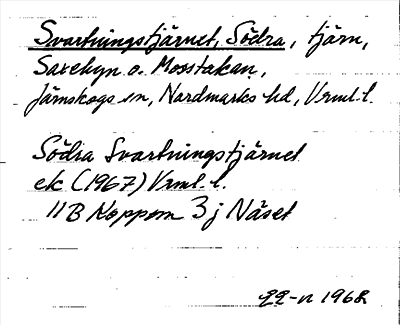 Svartningstjärnet, Södra, tjärn,
Saxebyn o. Mosstakan,
Järnskogs sn, Nordmarks hd, Vrml. l.
Södra Svartningstjärnet
ek (1967) Vrml. l.
11B Koppom 3 j Näset
1968